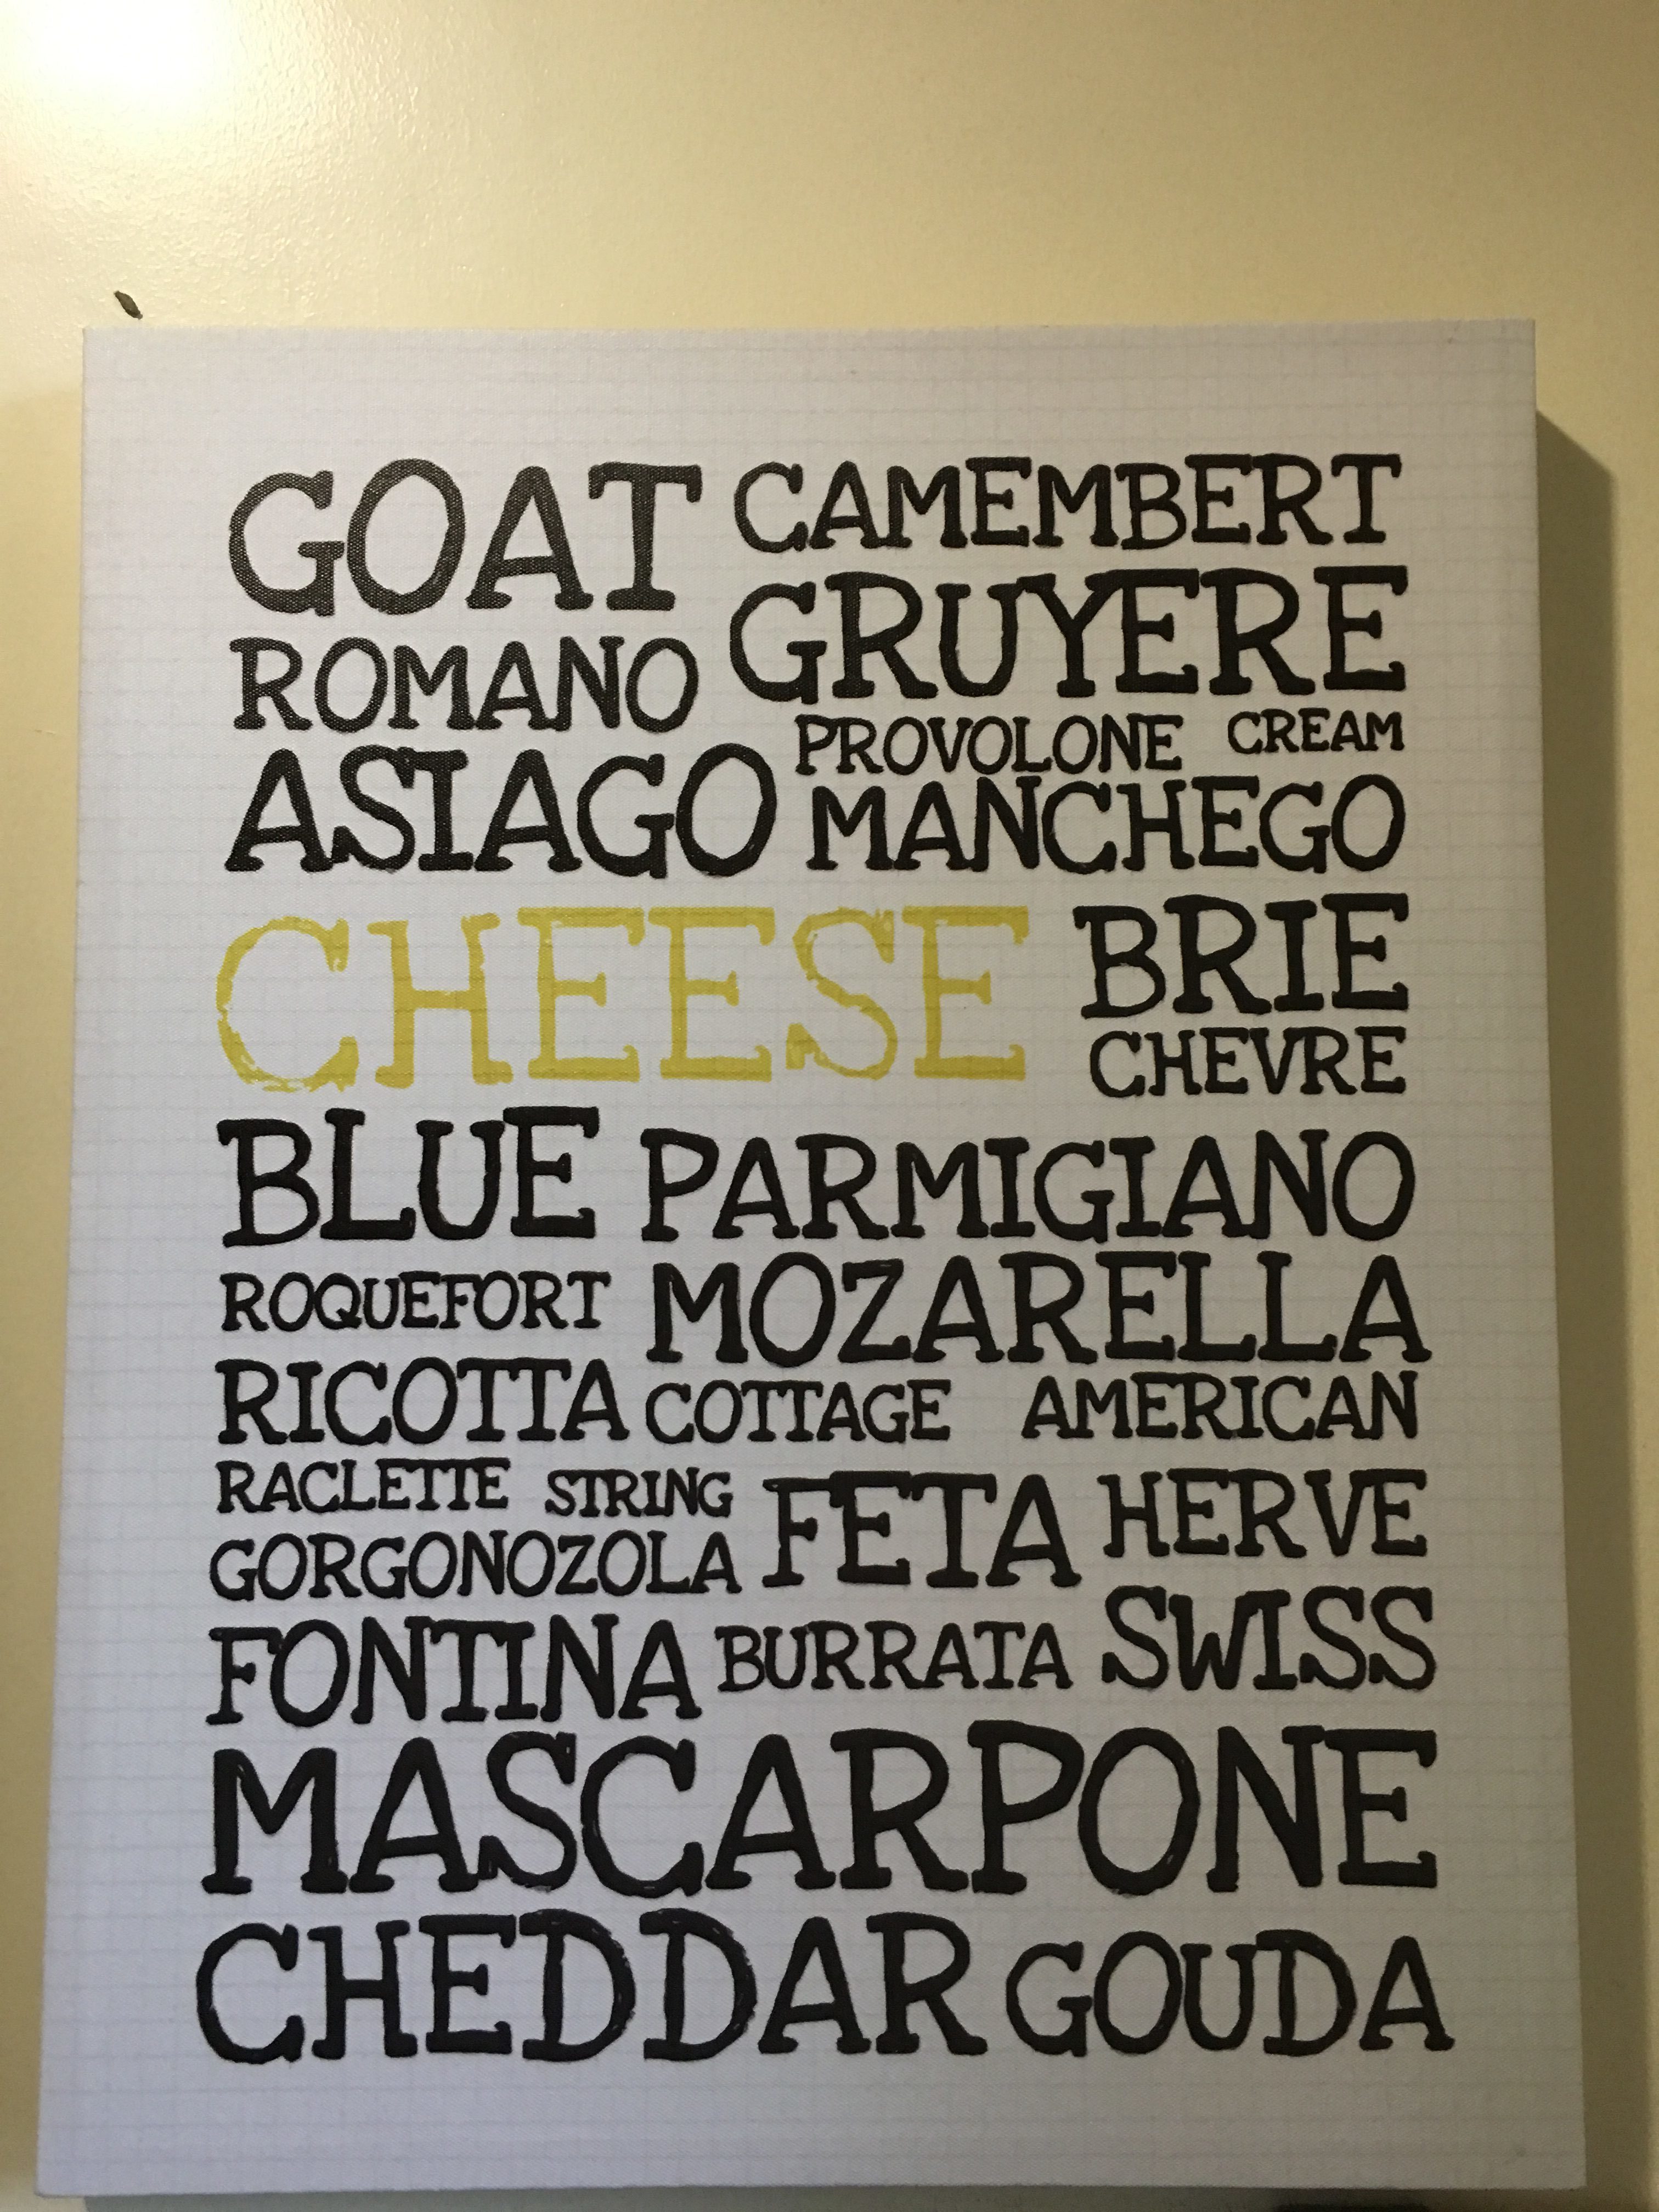 GOAT CAMEMBERT
ROMANO GRUYERE
PROVOLONE CREAM
ASIAGO MANCHEGO
CHEESE BRIE
CHEVRE
BLUE PARMIGIANO
ROQUEFORT MOZARELLA
RICOTTA COTTAGE AMERICAN
RACLETTE STRING FETA HERVE
GORGONOZOLA
FONTINA BURRATA SWISS
MASCARPONE
CHEDDAR GOUDA